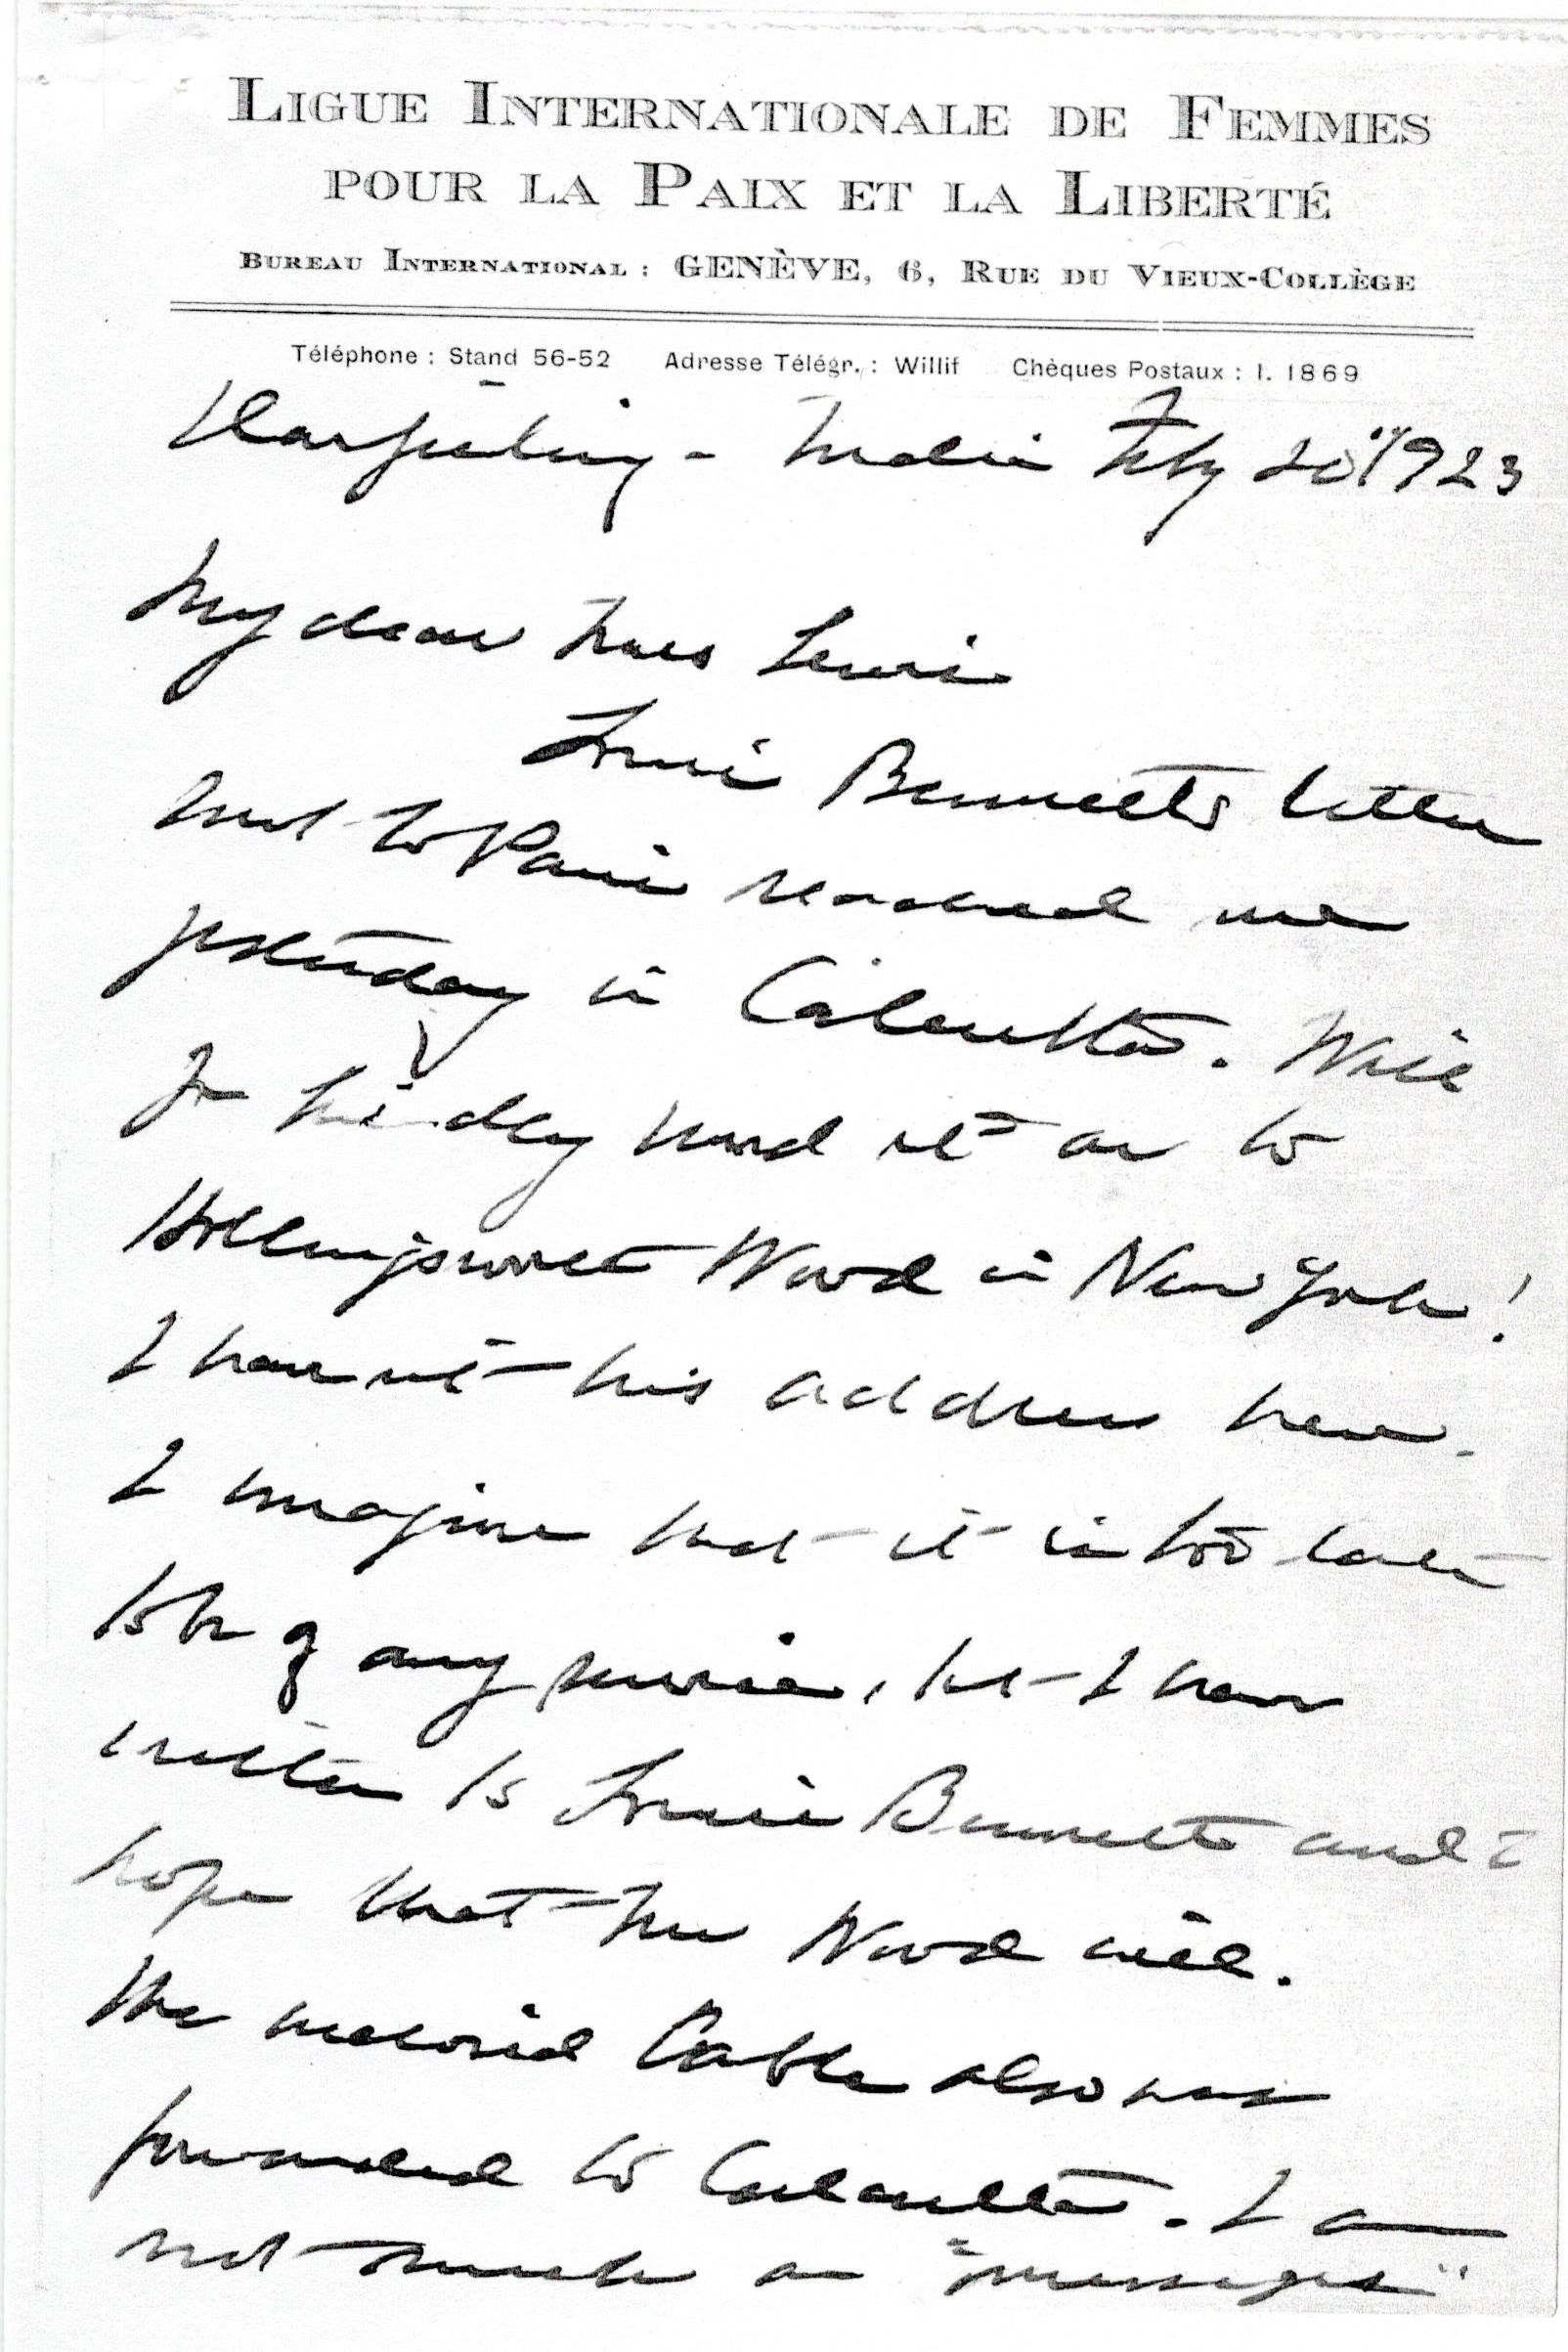 LIGUE INTERNATIONALE DE FEMMES
POUR LA PAIX ET LA LIBERTÉ
BUREAU INTERNATIONAL : GENÈVE, 6, RUE DU VIEUX-COLLÈGE
Téléphone : Stand 56-52 Adresse Télégr. : Willif Chèques Postaux : I. 1869
Darjeeling - India Feby 20" 1923
My dear Miss Lewis
Louie Bennett's letter
sent to Paris reached me
yesterday in Calcutta. Will
you kindly send it on to
Hollingsworth Wood in New York!
I have not his address here.
I imagine that it is too late
to be of any service, but I have
written to Louie Bennett and I
hope that Mr Wood will.
The second Cable also was
forwarded to Calcutta. I am
not much on "messages"